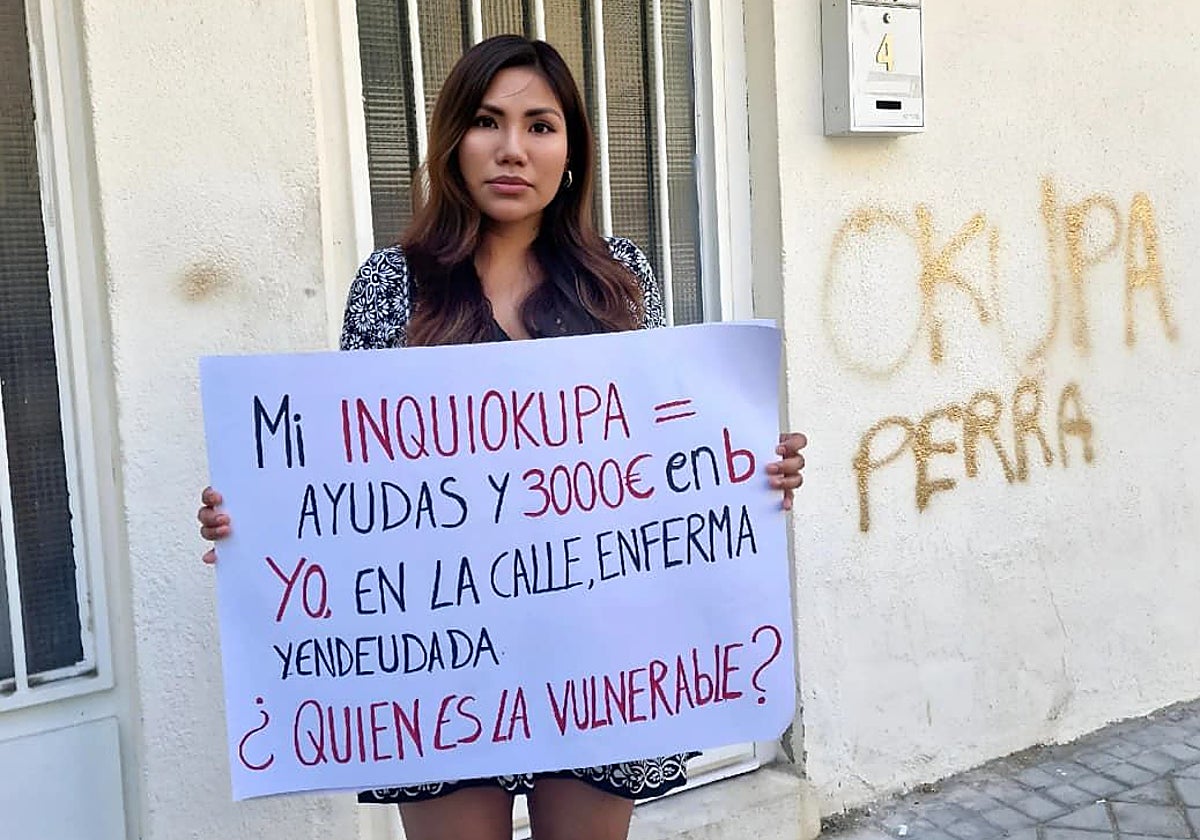 Mi INQUIOKUPA =
AYUDAS Y 3000€ en b
YO, EN LA CALLE, ENFERMA
Y ENDEUDADA.
¿QUIEN ES LA VULNERAbLE?
4
OKUPA
PERRA